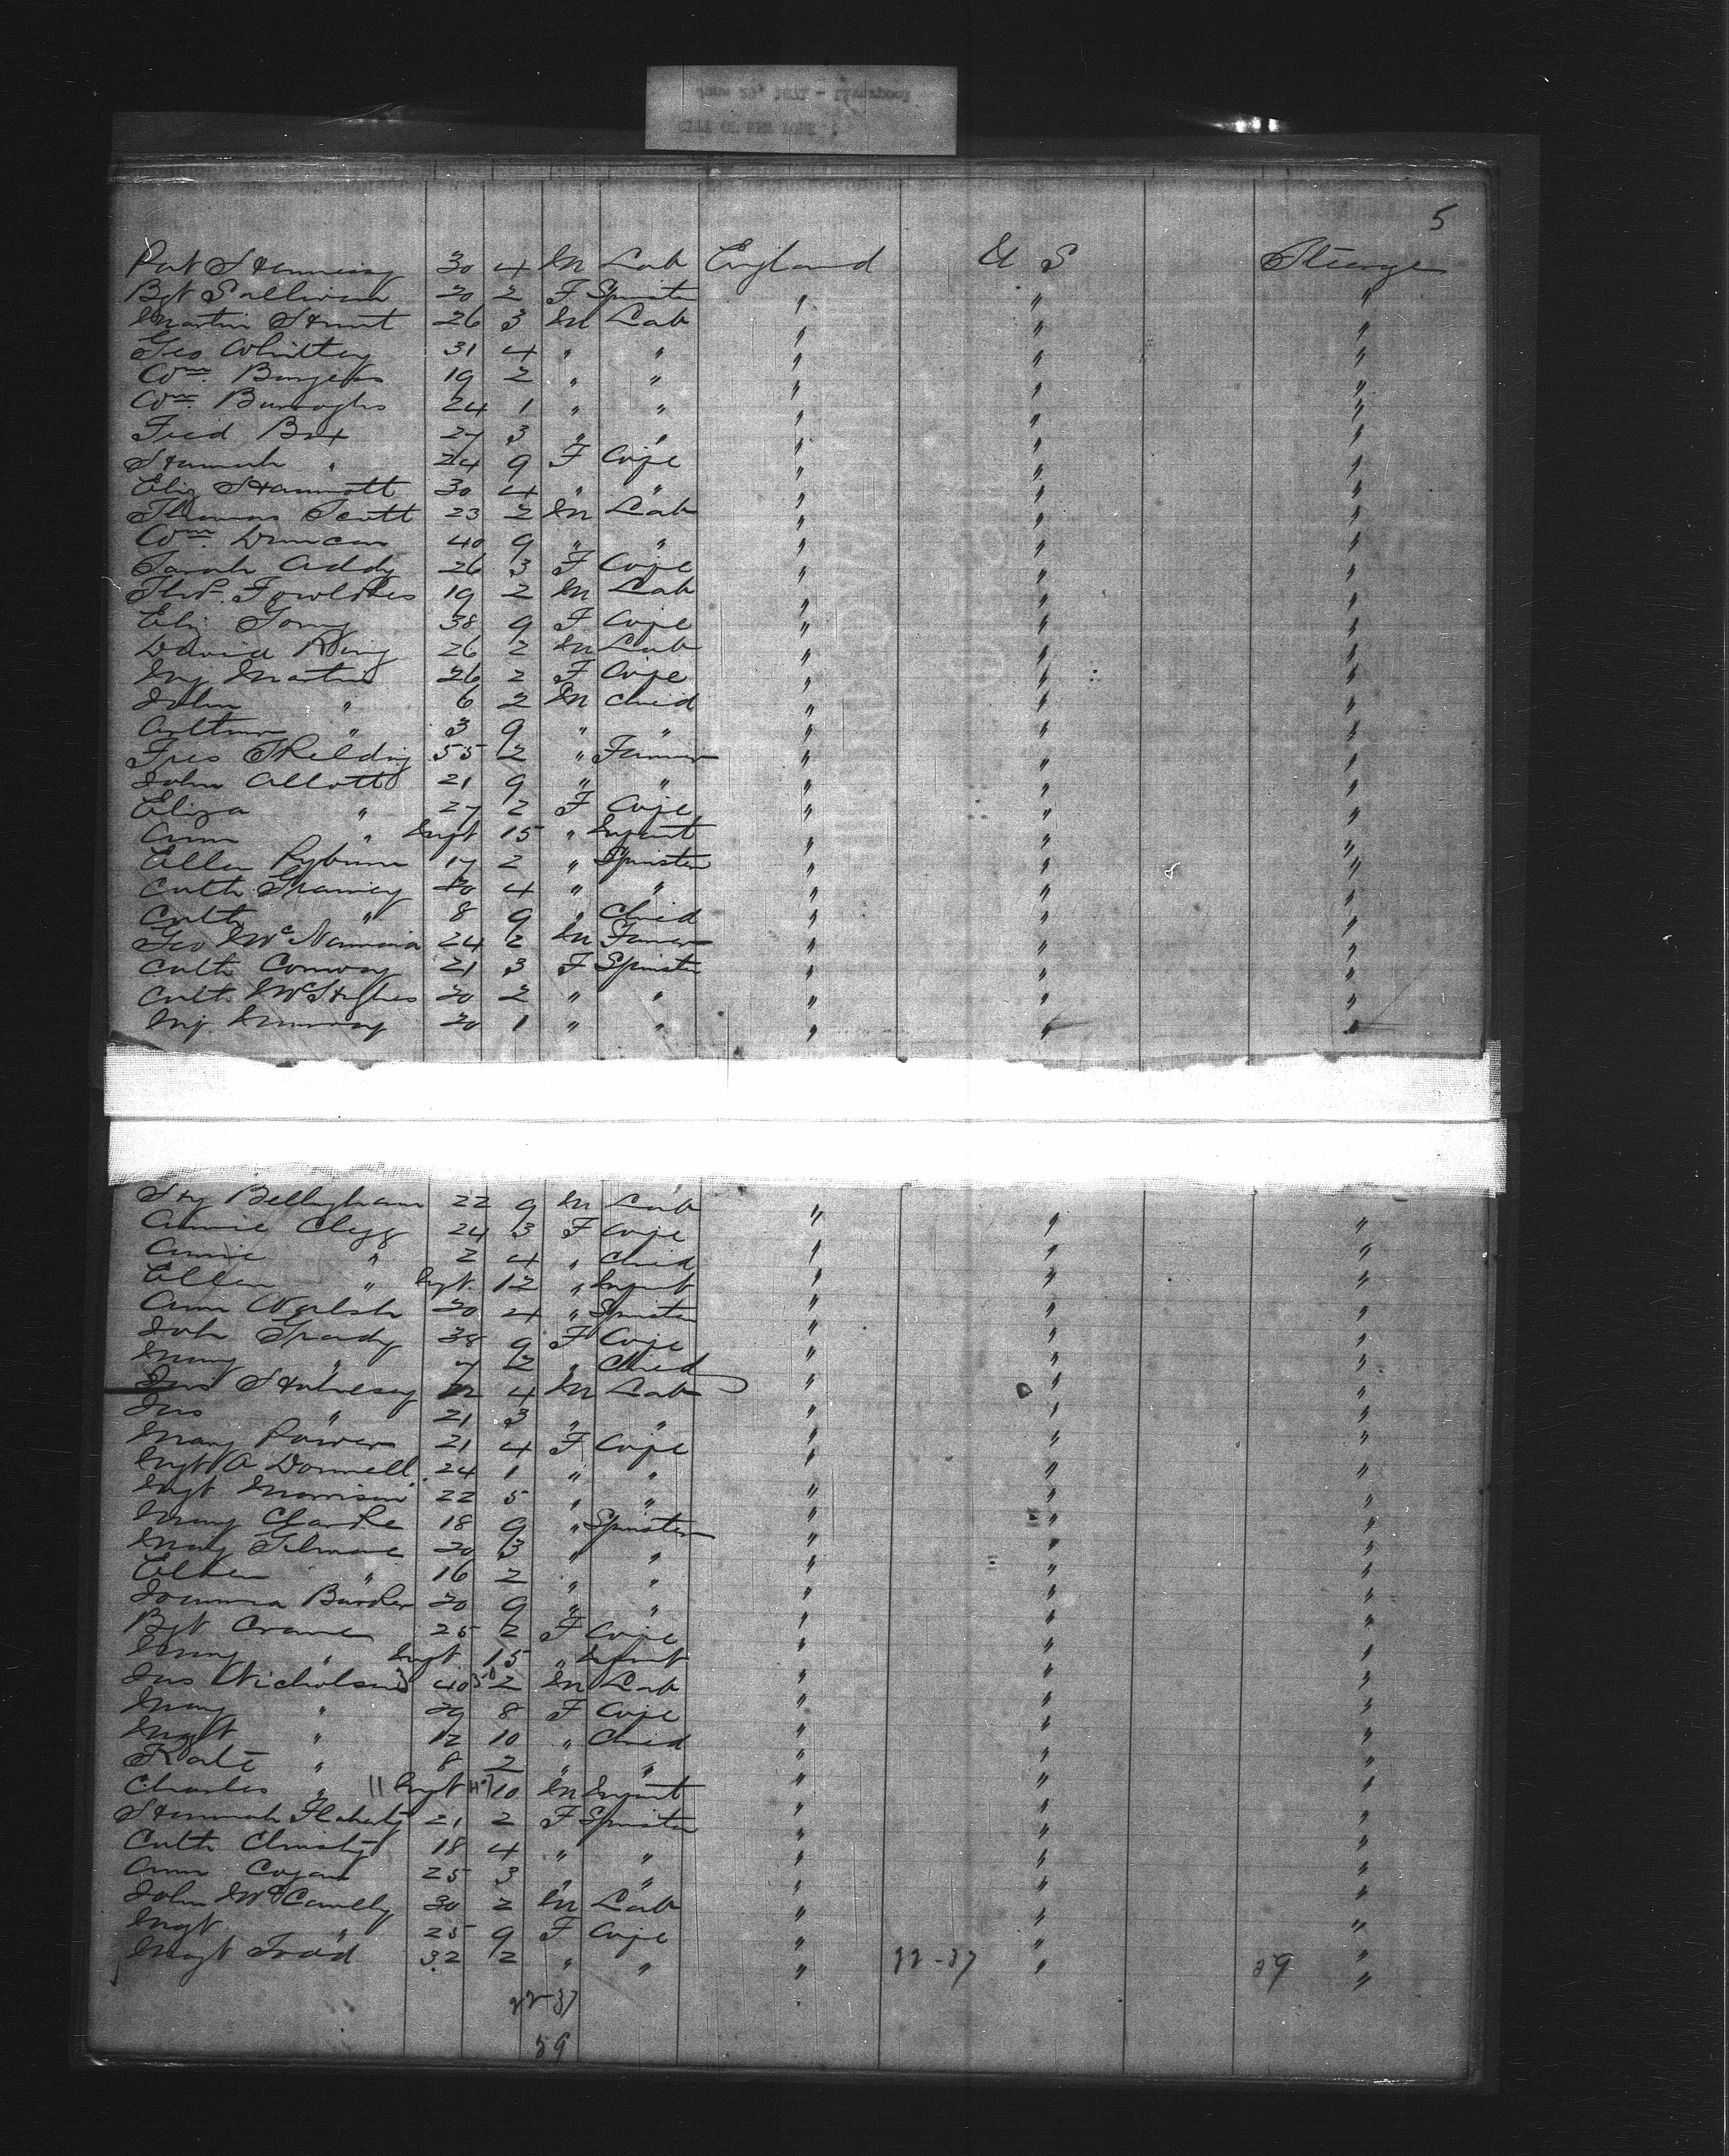 5
Pat Hennessy 30 4 M Lab England U S Steerage
Bgt Sullivan 20 2 F Spinster " " "
Martin Hunt 26 3 M Lab " " "
Geo Whitley 31 4 " " " " "
Wm Burgess 19 2 " " " " "
Wm Burroghs 24 1 " " " " "
Fred Box 27 3 " " " " "
Hannah " 24 9 F Wife " " "
Eliz Hammott 30 4 " " " " "
Thomas Scott 23 2 M Lab " " "
Wm Duncan 40 9 " " " " "
Sarah Addy 26 3 F Wife " " "
Thos Fowlkes 19 2 M Lab " " "
Eliz 38 9 F Wife " " "
David King 26 2 M Lab " " "
Mj Martin 26 2 F Wife " " "
John " 6 2 M Child " " "
Arthur " 3 9 " " " " "
55 2 " Farmer " " "
John Allott 21 9 " " " " "
Eliza " 27 2 F Wife " " "
Ann " Inft 15 " Infant " " "
Ellen Ryburn 17 2 " Spinster " " "
Cath 4 " " " " "
Cath " 8 9 " Child " " "
Geo McNamara 24 2 M Farmer " " "
Cath Conway 21 3 F Spinster " " "
Cath McHughes 20 2 " " " " "
Mj Murray 20 1 " " " " "
Hy Bellingham 22 9 M Lab " " "
Annie Clegg 24 3 F Wife " " "
Annie " 2 4 " Child " " "
Ellen " Inft 12 " Infant " " "
Ann Walsh 20 4 " Spinster " " "
Joh Grady 38 9 F Wife " " "
Mary " 7 2 " Child " " "
4 M Lab " " "
Jas " 21 3 " " " " "
Mary Power 21 4 F Wife " " "
Mgt A Donnell 24 1 " " " " "
Mgt Morrison 22 5 " " " " "
Mary Clarke 18 9 " Spinster " " "
Mary Gilmore 20 3 " " " " "
Ellen " 16 2 " " " " "
Barker 20 9 " " " " "
Bgt Crane 25 2 F Wife " " "
Mary " Inft 15 " Infant " " "
Jas Nicholson 40 2 M Lab " " "
Mary " 29 8 F Wife " " "
Mgt " 12 10 " Child " " "
Kate " 8 2 " " " " "
Charles " 11 Inft 10 M Infant " " "
Hannah Flaherty 21 2 F Spinster " " "
Cath Christy 18 4 " " " " "
Ann Cogan 25 3 " " " " "
John McCanelly 30 2 M Lab " " "
Mgt " 25 9 F Wife " " "
Mgt Trod 32 2 " " " 22-37 " 59 "
22-37
59